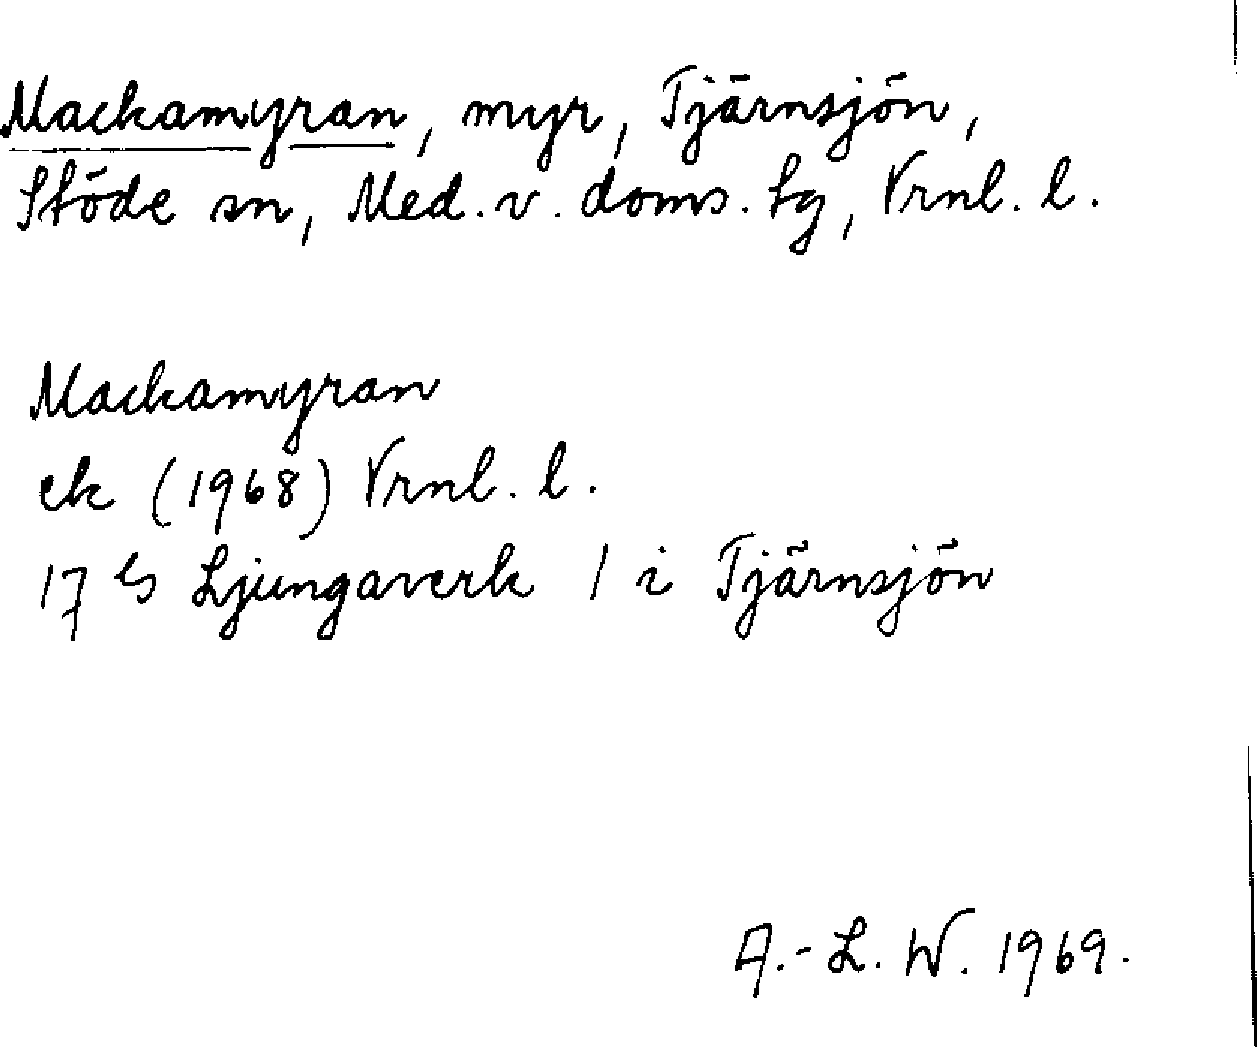 Mackamyran, myr, Tjärnsjön,
Stöde sn, Med. v. doms. tg, Vrnl. l.
Mackamyran
ek (1968) Vrnl. l.
17 G Ljungaverk 1 i Tjärnsjön
A.-L. W. 1969.